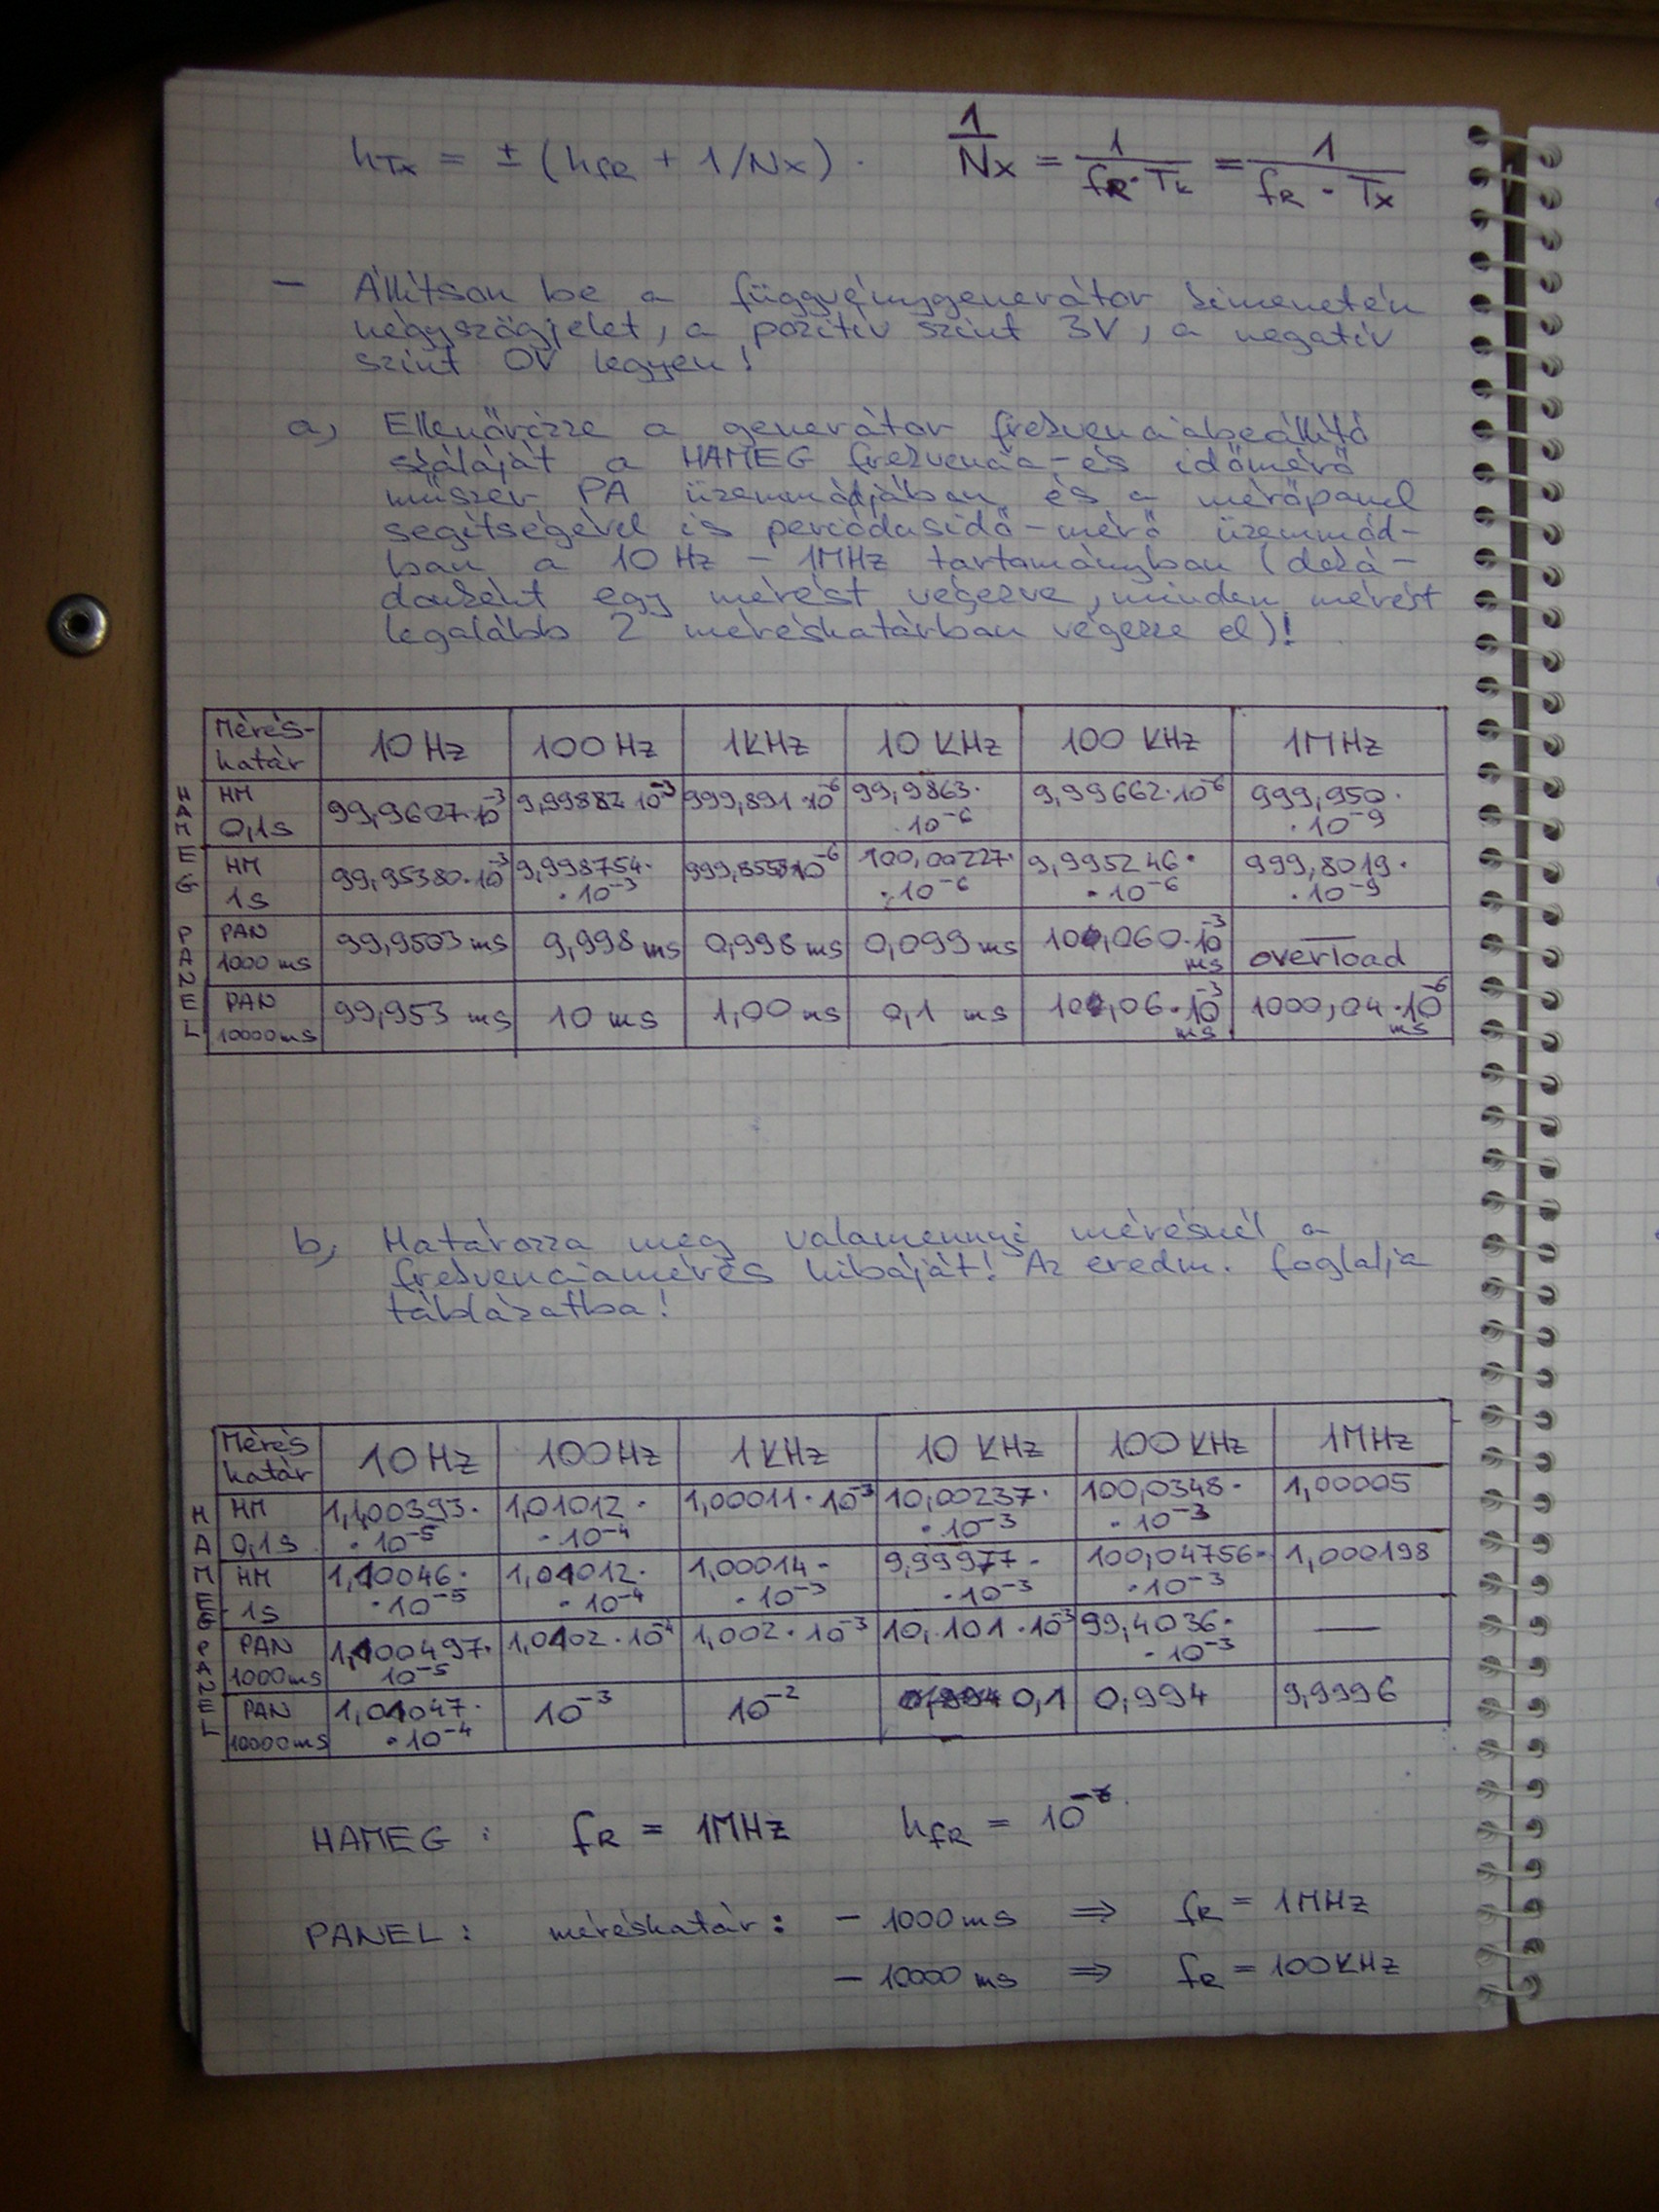 hTx = ± (hfR + 1/Nx). 1/Nx = 1/(fR·Tx) = 1/(fR · Tx)
- Állítson be a függvénygenerátor kimenetén
négyszögjelet, a pozitív szint 3V, a negatív
szint 0V legyen!
a, Ellenőrizze a generátor frekvenciabeállító
skáláját a HAMEG frekvencia- és időmérő
műszer PA üzemmódjában és a mérőpanel
segítségével is periódusidő-mérő üzemmód-
ban a 10 Hz - 1MHz tartományban (deká-
donként egy mérést végezve, minden mérést
legalább 2 méréshatárban végezze el)!
Mérés-határ 10 Hz 100 Hz 1KHz 10 KHz 100 KHz 1MHz
HAMEG HM 0,1s 99,9607·10⁻³ 9,99882·10⁻³ 999,891·10⁻⁶ 99,9863·10⁻⁶ 9,99662·10⁻⁶ 999,950·10⁻⁹
HM 1s 99,95380·10⁻³ 9,998754·10⁻³ 999,8558·10⁻⁶ 100,00227·10⁻⁶ 9,995246·10⁻⁶ 999,8019·10⁻⁹
PANEL PAN 1000 ms 99,9503 ms 9,998 ms 0,998 ms 0,099 ms 100,060·10⁻³ ms overload
PAN 10000ms 99,953 ms 10 ms 1,00 ms 0,1 ms 100,06·10⁻³ ms 1000,04·10⁻⁶ ms
b, Határozza meg valamennyi mérésnél a
frekvenciamérés hibáját! Az eredm. foglalja
táblázatba!
Mérés határ 10 Hz 100Hz 1 KHz 10 KHz 100 KHz 1MHz
HAMEG HM 0,1s 1,100393·10⁻⁵ 1,01012·10⁻⁴ 1,00011·10⁻³ 10,00237·10⁻³ 100,0348·10⁻³ 1,00005
HM 1s 1,10046·10⁻⁵ 1,01012·10⁻⁴ 1,00014·10⁻³ 9,99977·10⁻³ 100,04756·10⁻³ 1,000198
PANEL PAN 1000ms 1,100497·10⁻⁵ 1,0102·10⁻⁴ 1,002·10⁻³ 10,101·10⁻³ 99,4036·10⁻³ —
PAN 10000ms 1,01047·10⁻⁴ 10⁻³ 10⁻² 0,1 0,994 9,9996
HAMEG: fR = 1MHz hfR = 10
PANEL: méréshatár: - 1000ms ⇒ fR = 1MHz
- 10000 ms ⇒ fR = 100KHz